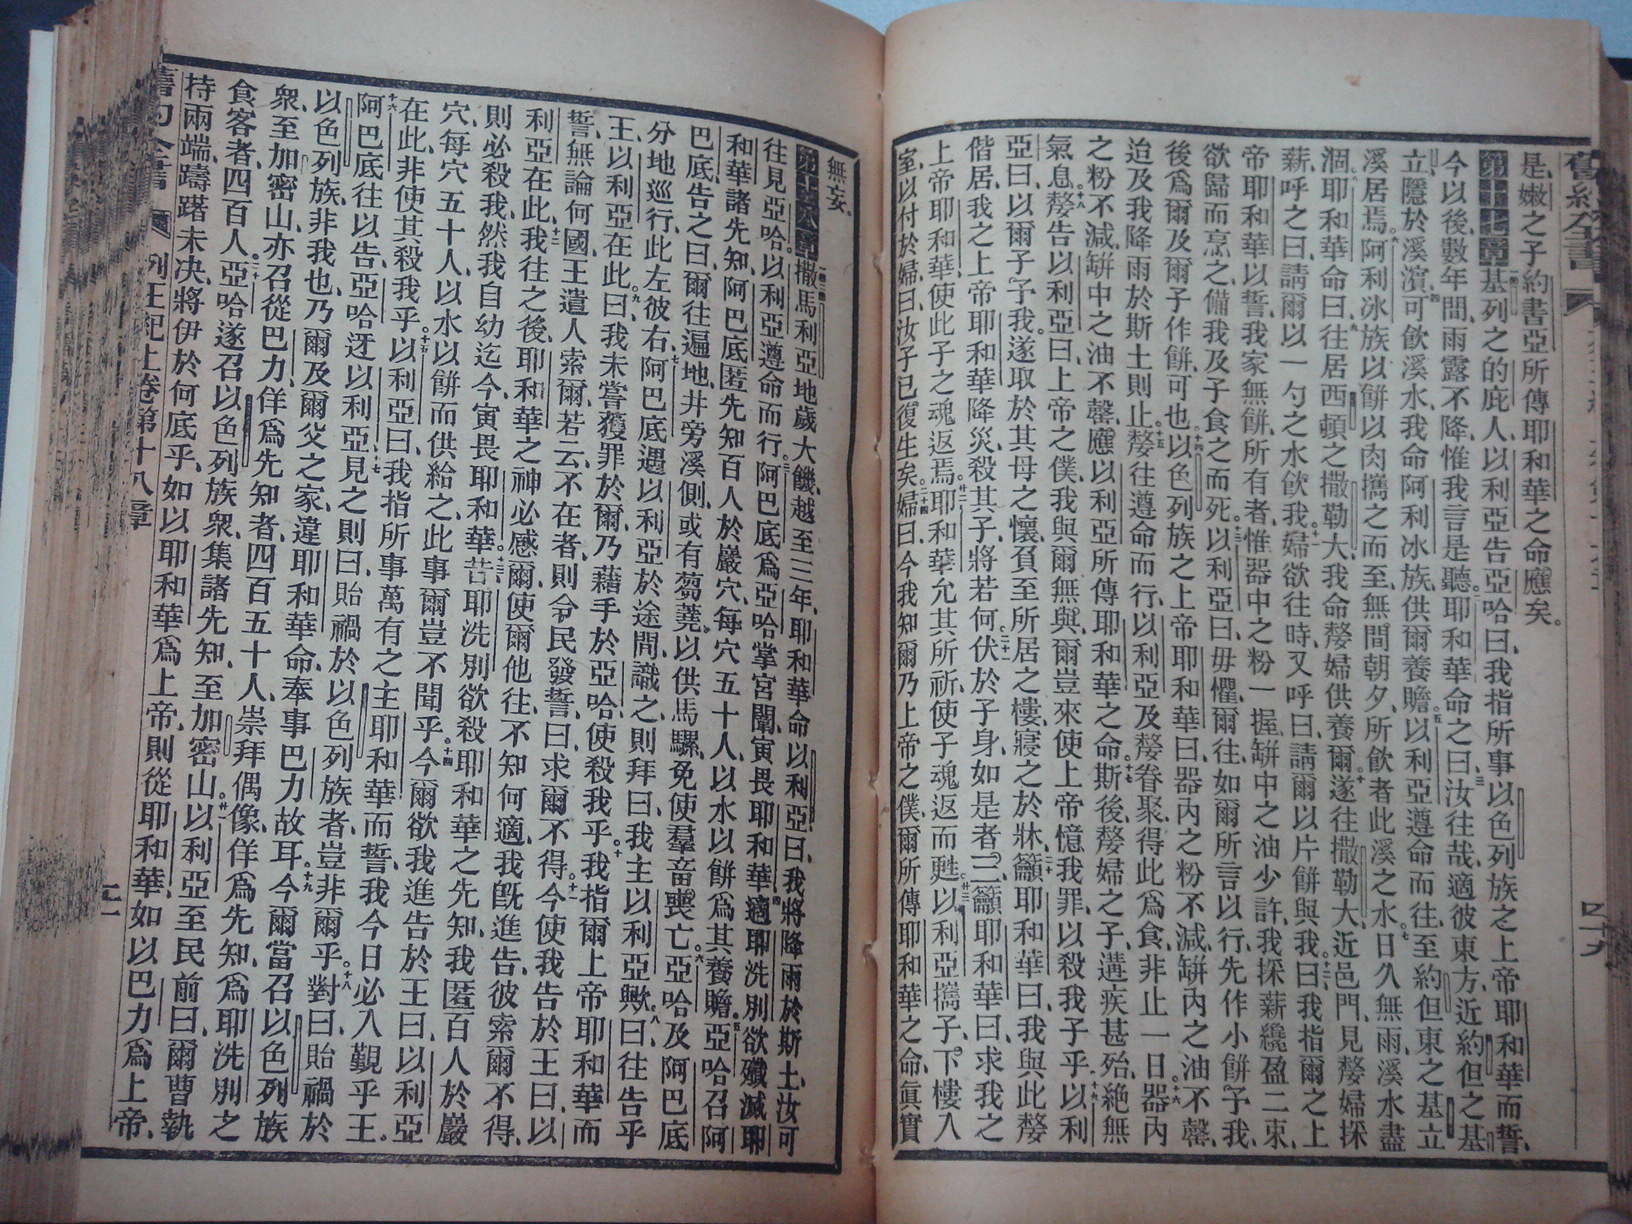 是、嫩之子約書亞所傳耶和華之命應矣。
第十七章 基列之的庇人以利亞告亞哈曰、我指所事以色列族之上帝耶和華而誓、
今以後、數年間、雨露不降、惟我言是聽。耶和華命之曰、汝往哉、適彼東方、近約但之基
立、隱於溪濱、可飲溪水、我命阿利冰族、供爾養贍。以利亞遵命而往、至約但東之基立
溪居焉。阿利冰族以餅以肉攜之而至、無間朝夕、所飲者此溪之水。日久無雨、溪水盡
涸、耶和華命曰、往居西頓之撒勒大、我命嫠婦供養爾。遂往撒勒大、近邑門、見嫠婦採
薪、呼之曰、請爾以一勺之水飲我。婦欲往時、又呼曰、請爾以片餅與我。曰、我指爾之上
帝耶和華以誓、我家無餅、所有者、惟器中之粉一握、缾中之油少許、我採薪纔盈二束、
欲歸而烹之、備我及子食之而死。以利亞曰、毋懼、爾往、如爾所言以行、先作小餅予我、
後爲爾及爾子作餅、可也。以色列族之上帝耶和華曰、器內之粉不減、缾內之油不罄、
迨及我降雨於斯土則止。嫠往遵命而行、以利亞及嫠眷聚、得此爲食、非止一日、器內
之粉不減、缾中之油不罄、應以利亞所傳耶和華之命。斯後嫠婦之子、遘疾甚殆、絕無
氣息。嫠告以利亞曰、上帝之僕、我與爾無與、爾豈來使上帝憶我罪、以殺我子乎。以利
亞曰、以爾子予我。遂取於其母之懷、負至所居之樓、寢之於牀、籲耶和華曰、我與此嫠
偕居、我之上帝耶和華降災、殺其子、將若何。伏於子身、如是者三、籲耶和華曰、求我之
上帝耶和華、使此子之魂返焉。耶和華允其所祈、使子魂返而甦。以利亞攜子、下樓入
室、以付於婦曰、汝子已復生矣。婦曰、今我知爾乃上帝之僕、爾所傳耶和華之命、眞實
無妄。
第十八章 撒馬利亞地、歲大饑、越至三年、耶和華命以利亞曰、我將降雨於斯土、汝可
往見亞哈。以利亞遵命而行。阿巴底爲亞哈掌宮闈、寅畏耶和華。適耶洗別欲殲滅耶
和華諸先知、阿巴底匿先知百人於巖穴、每穴五十人、以水以餅、爲其養贍。亞哈召阿
巴底告之曰、爾往遍地、井旁溪側、或有芻蕘、以供馬騾、免使羣畜喪亡。亞哈及阿巴底
分地巡行、此左彼右。阿巴底遇以利亞於途間、識之、則拜曰、我主以利亞歟。曰、往告乎
王、以利亞在此。曰、我未嘗獲罪於爾、乃藉手於亞哈、使殺我乎。我指爾上帝耶和華而
誓、無論何國、王遣人索爾、若云不在者、則令民發誓、曰、求爾不得。今使我告於王曰、以
利亞在此、我往之後、耶和華之神必感爾、使爾他往、不知何適、我旣進告、彼索爾不得、
則必殺我、然我自幼迄今、寅畏耶和華。昔耶洗別欲殺耶和華之先知、我匿百人於巖
穴、每穴五十人、以水以餅而供給之、此事爾豈不聞乎。今爾欲我進告於王曰、以利亞
在此、非使其殺我乎。以利亞曰、我指所事萬有之主耶和華而誓、我今日必入覲乎王。
阿巴底往以告、亞哈迓以利亞、見之則曰、貽禍於以色列族者、豈非爾乎。對曰、貽禍於
以色列族、非我也、乃爾及爾父之家、違耶和華命、奉事巴力故耳。今爾當召以色列族
衆、至加密山、亦召從巴力、佯爲先知者、四百五十人、崇拜偶像、佯爲先知、爲耶洗別之
食客者、四百人。亞哈遂召以色列族衆、集諸先知、至加密山。以利亞至民前曰、爾曹執
持兩端、躊躇未決、將伊於何底乎、如以耶和華爲上帝、則從耶和華、如以巴力爲上帝、
列王紀上卷第十八章